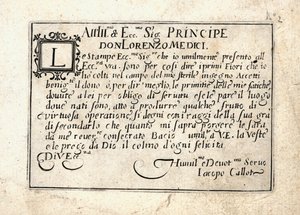 Ill.mo & Ecc.mo Sig. PRINCIPE
DON LORENZO MEDICI.
Le Stampe Ecc.mo Sig.re che io umilmente presento all'
Ecc.za Vra. sono per così dire i primi Fiori che io
ho colti nel campo del mio sterile ingegno Accetti
benig.te il dono ò, per dir meglio, le primitie delle mie fatiche,
dovute a lei per obligo di servitù et se le pare il luogo
dove nati sono, atto à produrre qualche frutto, di
virtuosa operatione si degni con i raggi della sua gra
di secondarlo che quanto mi saprò porgere le sarà
da me reuer.te consecrato Bacio umil.te A V.E. la Veste
e le prego da Dio il colmo d'ogni felicità
Di V. Ecc.za
Humil.mo et Devot.mo Seruo
Iacopo Callot